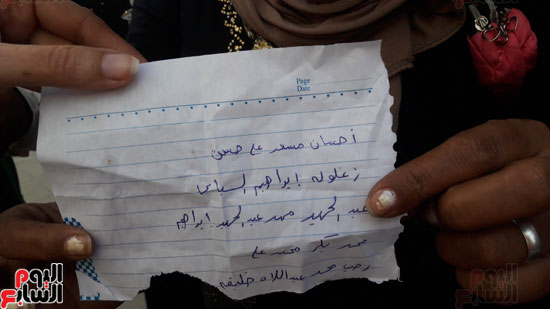 Page
Date
أحسان مسعد علي حسين
زغلوله إبراهيم السباعى
عبد الحميد محمد عبد الحميد ابراهيم
محمد بكر محمد علي
رجب محمد عبداللاه خليفه
اليوم السابع